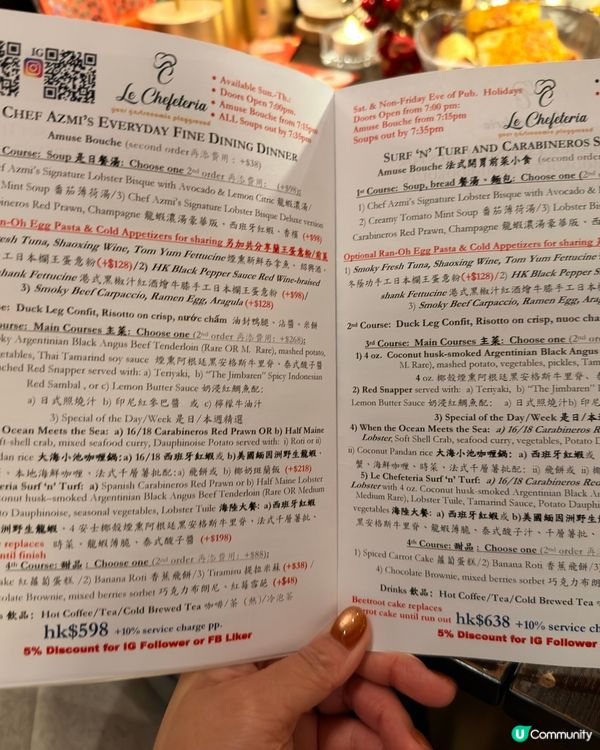 IG
Le Chefeteria
your gastronomic playground
• Available Sun.-Th.:
• Doors Open 7:00pm,
• Amuse Bouche from 7:15pm
• ALL Soups out by 7:35pm
CHEF AZMI'S EVERYDAY FINE DINING DINNER
Amuse Bouche (second order再添費用: +$38)
Course: Soup 是日餐湯: Choose one 2nd order 再添費用: +$98):
Azmi's Signature Lobster Bisque with Avocado & Lemon Citric 龍蝦濃湯/
Mint Soup 番茄薄荷湯/3) Chef Azmi's Signature Lobster Bisque Deluxe version
Red Prawn, Champagne 龍蝦濃湯豪華版、西班牙紅蝦、香檳 (+$98)
Egg Pasta & Cold Appetizers for sharing 另加共分享蘭王蛋意粉/前菜
Fresh Tuna, Shaoxing Wine, Tom Yum Fettucine
手工日本欄王蛋意粉(+$128)/2) HK Black Pepper Sauce Red Wine-braised
shank Fettucine 港式黑椒汁紅酒燴牛膝手工日本欄王蛋意粉 (+$98)/
3) Smoky Beef Carpaccio, Ramen Egg, Arugula (+$128)
Duck Leg Confit, Risotto on crisp, nước chấm 油封鴨腿、沾醬、米餅
Course: Main Courses 主菜: Choose one (2nd order 再添費用: +$268):
Argentinian Black Angus Beef Tenderloin (Rare OR M. Rare), mashed potato,
Thai Tamarind soy sauce 煙熏阿根廷黑安格斯牛里脊、泰式酸子醬
Red Snapper served with: a) Teriyaki, b) "The Jimbaren" Spicy Indonesian
Red Sambal, or c) Lemon Butter Sauce 奶浸紅鯛魚配:
a) 日式照燒汁 b) 印尼紅參巴醬 或 c) 檸檬牛油汁
3) Special of the Day/Week 是日/本週精選
Ocean Meets the Sea: a) 16/18 Carabineros Red Prawn OR b) Half Maine
soft-shell crab, mixed seafood curry, Dauphinoise Potato served with: i) Roti or ii)
Pandan rice 大海小池咖喱鍋: a) 16/18 西班牙紅蝦或 b)美國緬因洲野生龍蝦、
、本地海鮮咖喱、法式千層薯批配: a) 飛餅或 b) 椰奶斑蘭飯 (+$218)
Surf 'n' Turf: a) Spanish Carabineros Red Prawn or b) Half Maine Lobster
husk-smoked Argentinian Black Angus Beef Tenderloin (Rare OR Medium
Dauphinoise, seasonal vegetables, Lobster Tuile 海陸大餐: a) 西班牙紅蝦或
野生龍蝦、4 安士椰殼煙熏阿根廷黑安格斯牛里脊、法式千層薯批、
時菜、龍蝦薄脆、泰式酸子醬 (+$198)
replaces
until finish
4th Course: 甜品: Choose one (2nd order 再添費用: +$88):
紅蘿蔔蛋糕 /2) Banana Roti 香蕉飛餅/3) Tiramisu 提拉米蘇(+$38)/
Chocolate Brownie, mixed berries sorbet 巧克力布朗尼、紅莓雪葩 (+$48)
飲品: Hot Coffee/Tea/Cold Brewed Tea 咖啡/茶 (熱)/冷泡茶
hk$598 +10% service charge pp.
5% Discount for IG Follower or FB Liker
Sat. & Non-Friday Eve of Pub. Holidays
Doors Open from 7:00 pm:
Amuse Bouche from 7:15pm
Soups out by 7:35pm
Le Chefeteria
your gastronomic playground
SURF 'N' TURF AND CARABINEROS
Amuse Bouche 法式開胃前菜小食 (second order
1st Course: Soup, bread 餐湯、麵包: Choose one (2nd
1) Chef Azmi's Signature Lobster Bisque with Avocado &
2) Creamy Tomato Mint Soup 番茄薄荷湯/3) Lobster
Carabineros Red Prawn, Champagne 龍蝦濃湯豪華版、西班牙紅蝦、
Optional Ran-Oh Egg Pasta & Cold Appetizers for sharing
1) Smoky Fresh Tuna, Shaoxing Wine, Tom Yum Fettucine
冬蔭功手工日本欄王蛋意粉 (+$128)/ 2) HK Black Pepper
shank Fettucine 港式黑椒汁紅酒燴牛膝手工日本
3) Smoky Beef Carpaccio, Ramen Egg,
2nd Course: Duck Leg Confit, Risotto on crisp, nuoc cham
3rd Course: Main Courses 主菜: Choose one (2nd order
1) 4 oz. Coconut husk-smoked Argentinian Black Angus
M. Rare), mashed potato, vegetables, pickles,
4 oz. 椰殼煙熏阿根廷黑安格斯牛里脊、
2) Red Snapper served with: a) Teriyaki, b) "The Jimbaren"
Lemon Butter Sauce 奶浸紅鯛魚配: a) 日式照燒汁 b) 印尼
3) Special of the Day/Week 是日/本
4) When the Ocean Meets the Sea: a) 16/18 Carabineros Red
Lobster, Soft Shell Crab, seafood curry, vegetables, Potato
ii) Coconut Pandan rice 大海小池咖喱鍋: a) 西班牙紅蝦 或 b)
蟹、海鮮咖喱、時菜、法式千層薯批配: i) 飛餅 或 ii) 椰
5) Le Chefeteria Surf 'n' Turf: a) 16/18 Carabineros Red
Lobster with 4 oz. Coconut husk-smoked Argentinian Black
Medium Rare), Lobster Tuile, Tamarind Sauce, Potato
vegetables 海陸大餐: a) 西班牙紅蝦 或 b)美國緬因洲野生
黑安格斯牛里脊、龍蝦薄脆、泰式酸子汁、千層薯批、
4th Course: 甜品: Choose one (2nd order 再添
1) Spiced Carrot Cake 蘿蔔蛋糕/ 2) Banana Roti 香蕉飛餅/
4) Chocolate Brownie, mixed berries sorbet 巧克力布朗尼
Drinks 飲品: Hot Coffee/Tea/Cold Brewed Tea
Beetroot cake replaces
carrot cake until run out
hk$638 +10% service
5% Discount for IG Follower
U Community